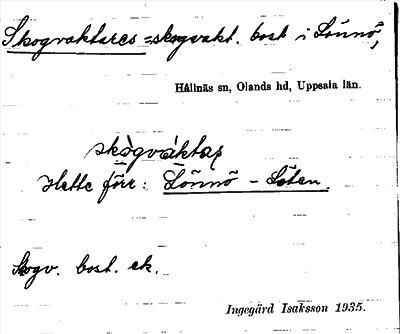 Skogvaktares = skogvakt. bost i Lönnö,
Hållnäs sn, Olands hd, Uppsala län.
skògvàktas
Hette förr: Lönnö - Löten.
Skogv. bost. ek.
Ingegärd Isaksson 1935.